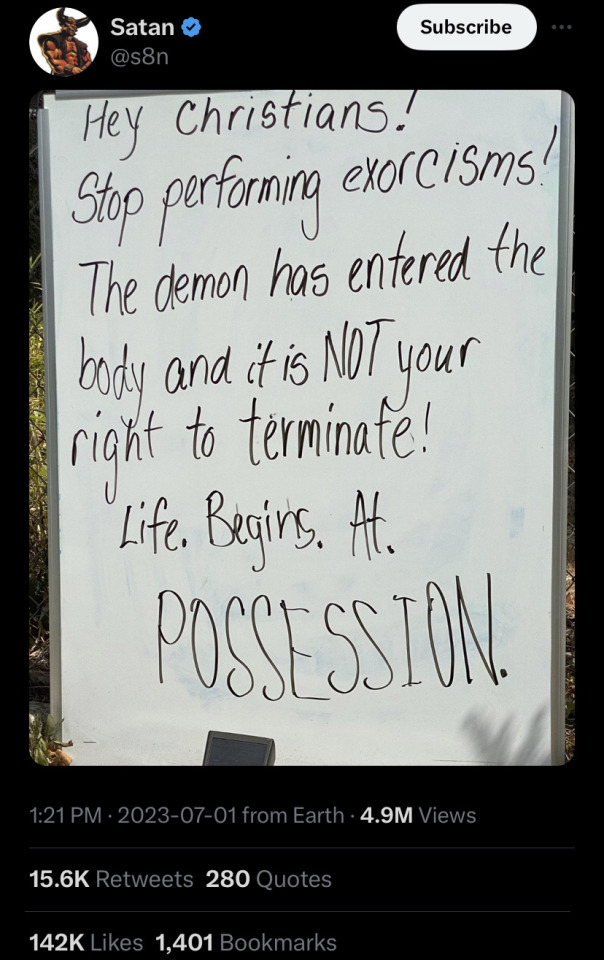 Satan
Subscribe
@s8n
Hey Christians!
Stop performing exorcisms!
The demon has entered the
body and it is NOT your
right to terminate!
Life. Begins. At.
POSSESSION.
1:21 PM · 2023-07-01 from Earth · 4.9M Views
15.6K Retweets 280 Quotes
142K Likes 1,401 Bookmarks